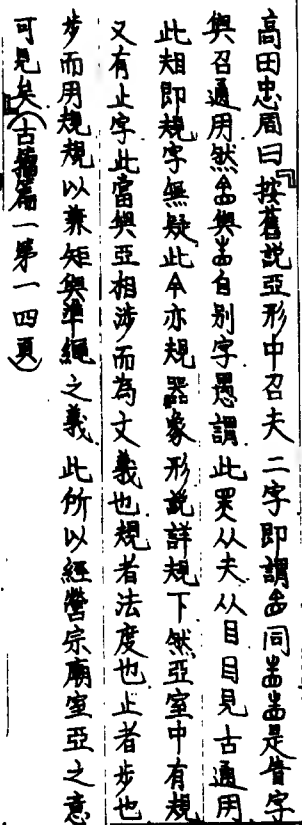 高田忠周曰『按舊說亞形中召夫二字即謂𠮦同𠱠𠱠是昔字
與召通用然𠮦與𠱠自別字愚謂此䀠从夫从目目見古通用
此䂓即規字無疑此𠆢亦規器象形說詳規下然亞室中有規
又有止字此當與亞相涉而為文義也規者法度也止者步也
步而用規規以兼矩與準繩之義此所以經營宗廟室亞之意
可見矣(古籀篇一第一四頁)